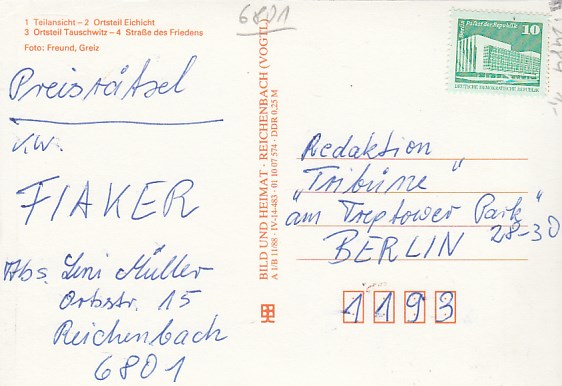 1 Teilansicht – 2 Ortsteil Eichicht
3 Ortsteil Tauschwitz – 4 Straße des Friedens
Foto: Freund, Greiz
6801
Preisrätsel
K.W.
FIAKER
Abs. Leni Müller
Ortsstr. 15
Reichenbach
6801
BILD UND HEIMAT · REICHENBACH (VOGTL)
A 1/B 11/88 · IV-14-483 · 01 10 07 574 · DDR 0,25 M
Berlin, Palast der Republik
10
DEUTSCHE DEMOKRATISCHE REPUBLIK
Redaktion
„Tribüne"
„am Treptower Park"
28-30
BERLIN
1193